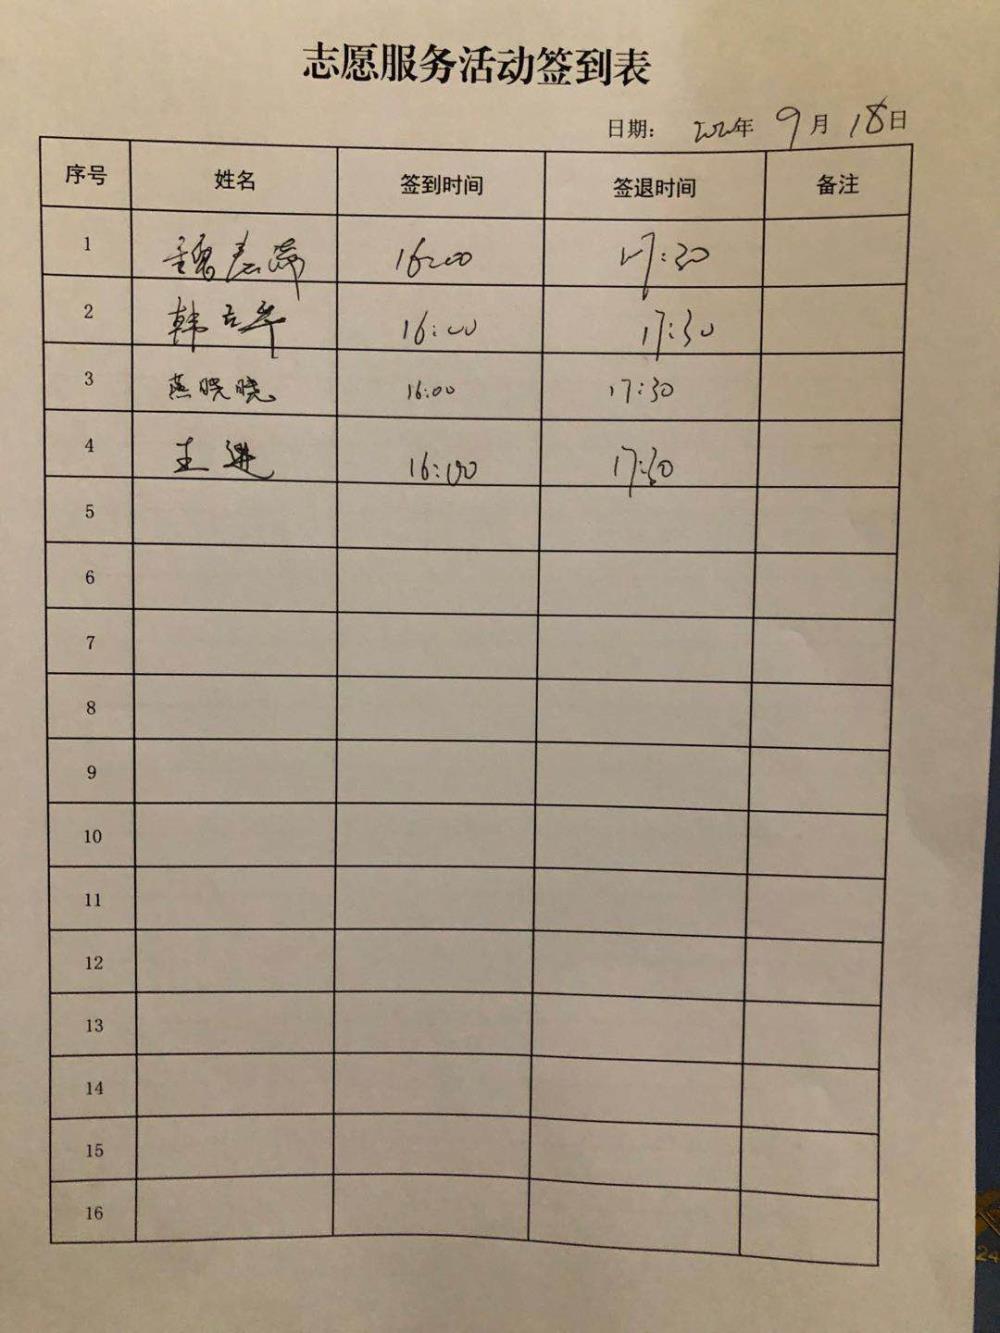 志愿服务活动签到表
日期： 年 9 月 18 日
序号 姓名 签到时间 签退时间 备注
1 16:00 17:30
2 韩 16:00 17:30
3 燕晓晓 16:00 17:30
4 王进 16:00 17:30
5
6
7
8
9
10
11
12
13
14
15
16
24